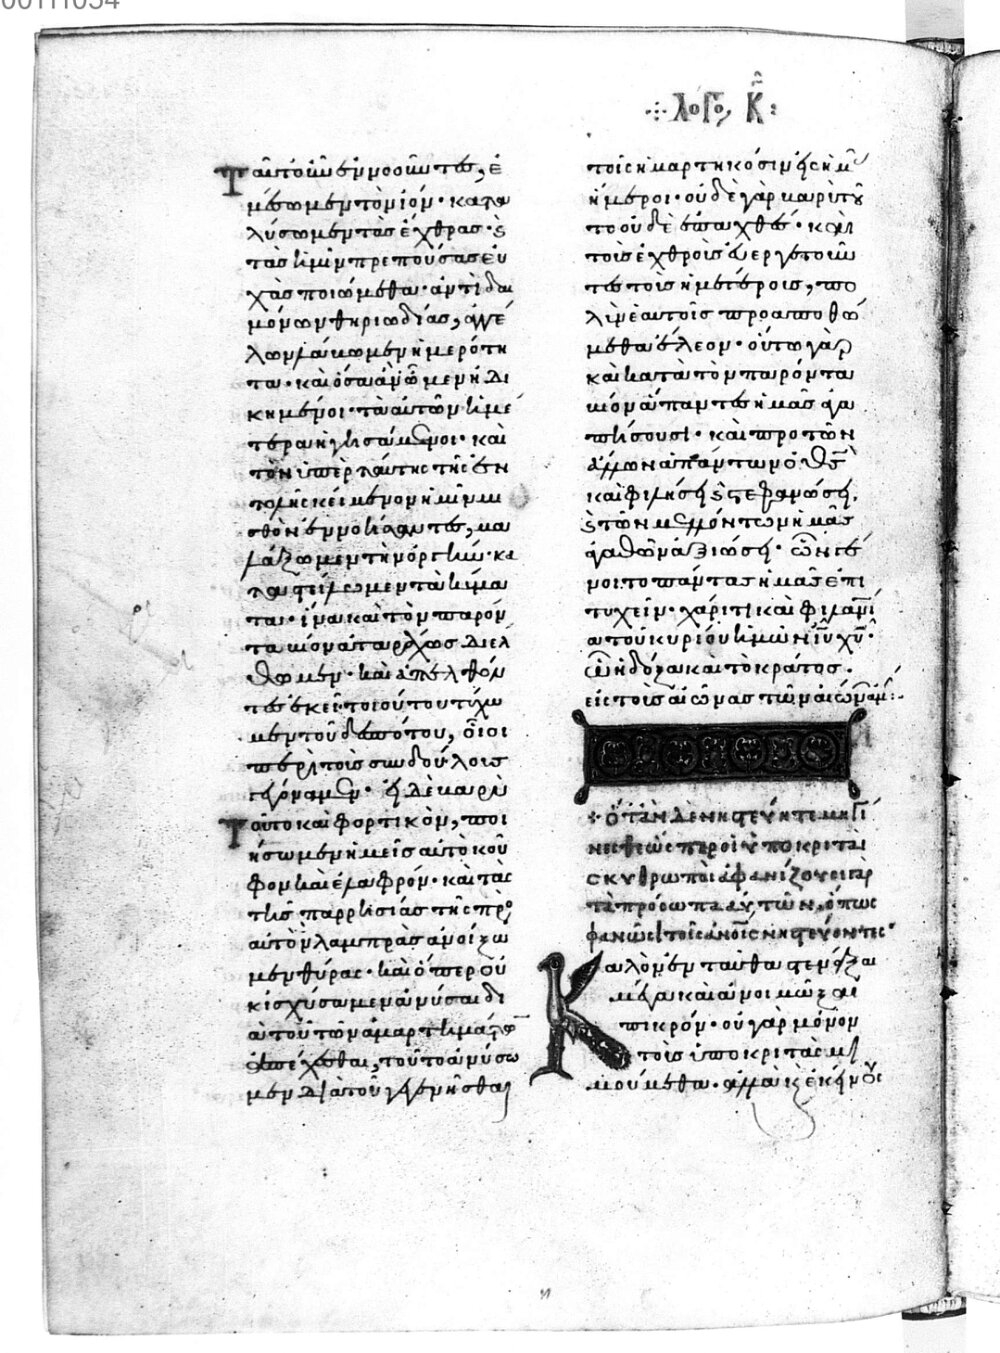 00111034
λογος κ
Ταῦτ' οὖν ἐννοοῦντες, ἐ
μέσωμεν τὸν ἰόν· κατα
λύσωμεν τὰς ἔχθρας· καὶ
τὰς ἡμῖν πρεπούσας εὐ
χὰς ποιώμεθα· ἀντὶ δαι
μόνων θηριωδίας, ἀγγέ
λων λάβωμεν ἡμερότη
τα· καὶ ὅσα ἂν ὦμεν ἠδι
κημένοι· τὰ αὐτῶν ἡμέ
τερα ἡγησάμενοι· καὶ
τὸν ὑπὲρ ταύτης τῆς ἐν
τολῆς κείμενον ἡμῖν μι
σθὸν ἐννοήσαντες, μα
λάξωμεν τὴν ὀργήν· κα
ταστείλωμεν τὰ κύμα
τα· ἵνα καὶ τὸν παρόν
τα βίον ἀταράχως διέλ
θωμεν· καὶ ἀπελθόν
τες ἐκεῖ τοιούτου τύχω
μεν τοῦ δεσπότου, οἷοι
περὶ τοὺς συνδούλους
γεγόναμεν· εἰ δὲ βαρὺ
Τοῦτο καὶ φορτικὸν, ποι
ήσωμεν ἡμεῖς αὐτὸ κοῦ
φον καὶ ἐλαφρόν· καὶ τὰς
τῆς παρρησίας τῆς πρὸς
αὐτὸν λαμπρὰς ἀνοίξω
μεν θύρας· καὶ ὅπερ οὐ
κ ἰσχύσαμεν ἀνύσαι δι
ὰ τοῦ τῶν ἁμαρτημάτων
ἀπέχεσθαι, τοῦτο ἀνύσω
μεν διὰ τοῦ γενέσθαι
τοῖς ἡμαρτηκόσιν εἰς ἡμᾶς
ἥμεροι· οὐδὲ γὰρ βαρὺ τοῦ
το οὐδὲ ἐπαχθές· καὶ
τοὺς ἐχθροὺς εὐεργετοῦν
τες τοὺς ἡμετέρους, πο
λὺν ἑαυτοῖς προαποθώ
μεθα ἔλεον· οὕτω γὰρ
καὶ κατὰ τὸν παρόντα
βίον ἅπαντες ἡμᾶς ἀγα
πήσουσι· καὶ πρὸ τῶν
ἄλλων ἁπάντων ὁ θς
καὶ φιλήσει καὶ στεφανώσει,
καὶ τῶν μελλόντων ἡμᾶς
ἀγαθῶν ἀξιώσει· ὧν γέ
νοιτο πάντας ἡμᾶς ἐπι
τυχεῖν· χάριτι καὶ φιλανίᾳ
τοῦ κυρίου ἡμῶν ιυ χυ·
ᾧ ἡ δόξα καὶ τὸ κράτος·
εἰς τοὺς αἰῶνας τῶν αἰώνων ἀμήν:
Ὅταν δὲ νηστεύητε μὴ γί
νεσθε ὥσπερ οἱ ὑποκριταὶ
σκυθρωποί· ἀφανίζουσι γὰρ
τὰ πρόσωπα αὐτῶν, ὅπως
φανῶσι τοῖς ανοις νηστεύοντες·
Καλὸν ἐνταῦθα στενάξαι
μέγα καὶ ἀνοιμῶξαι
πικρόν· οὐ γὰρ μόνον
τοὺς ὑποκριτὰς μι
μούμεθα· ἀλλὰ καὶ ἐκείνους